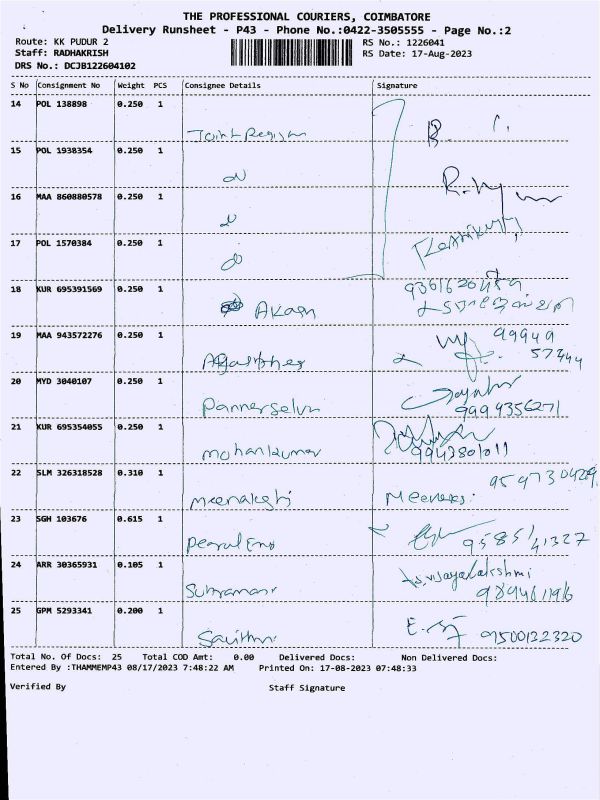 THE PROFESSIONAL COURIERS, COIMBATORE
Delivery Runsheet - P43 - Phone No.:0422-3505555 - Page No.:2
Route: KK PUDUR 2 RS No.: 1226041
Staff: RADHAKRISH RS Date: 17-Aug-2023
DRS No.: DCJB122604102
S No Consignment No Weight PCS Consignee Details Signature
14 POL 138898 0.250 1
Joint Register
15 POL 1938354 0.250 1
16 MAA 860880578 0.250 1
17 POL 1570384 0.250 1
18 KUR 695391569 0.250 1
Akash
19 MAA 943572276 0.250 1 99949
57344
20 MYD 3040107 0.250 1
Pannerselvn
9994356271
21 KUR 695354055 0.250 1
mohankumar 9943801011
22 SLM 326318528 0.310 1
meenakshi
23 SGH 103676 0.615 1
9585/41327
24 ARR 30365931 0.105 1
vijayalakshmi
9894611916
25 GPM 5293341 0.200 1
9500132320
Total No. Of Docs: 25 Total COD Amt: 0.00 Delivered Docs: Non Delivered Docs:
Entered By :THAMMEMP43 08/17/2023 7:48:22 AM Printed On: 17-08-2023 07:48:33
Verified By Staff Signature